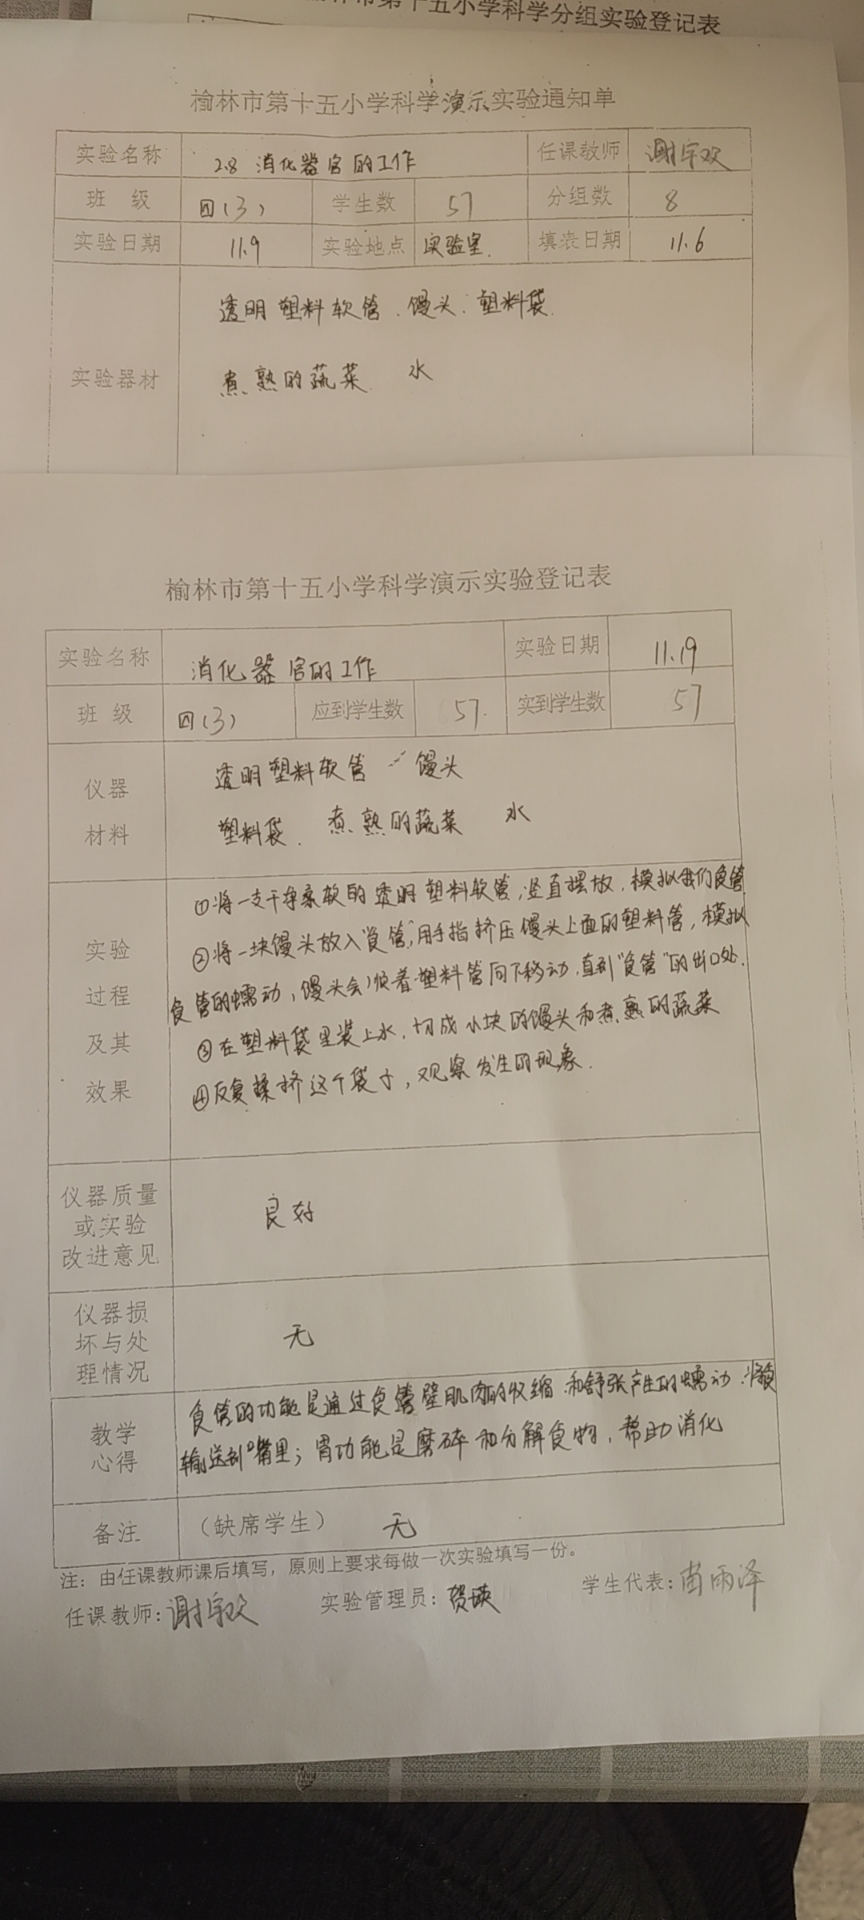 市第十五小学科学分组实验登记表
榆林市第十五小学科学演示实验通知单
实验名称 2.8 消化器官的工作 任课教师 谢宇欢
班 级 四(3) 学生数 57 分组数 8
实验日期 11.9 实验地点 实验室. 填表日期 11.6
透明塑料软管. 馒头. 塑料袋.
实验器材 煮熟的蔬菜. 水
榆林市第十五小学科学演示实验登记表
实验名称 消化器官的工作 实验日期 11.19
班 级 四(3) 应到学生数 57. 实到学生数 57
仪器 透明塑料软管 馒头
材料 塑料袋. 煮熟的蔬菜 水
①将一支干净柔软的透明塑料软管,竖直摆放.模拟我们食管
实验 ②将一块馒头放入"食管",用手指挤压馒头上面的塑料管,模拟
过程 食管的蠕动,馒头会顺着塑料管向下移动.直到"食管"的出口处.
及其 ③在塑料袋里装上水.切成小块的馒头和煮熟的蔬菜
效果 ④反复揉挤这个袋子,观察发生的现象.
仪器质量
或实验 良好
改进意见
仪器损
坏与处 无
理情况
教学 食管的功能是通过食管壁肌肉的收缩和舒张产生的蠕动.将食
心得 输送到嘴里;胃功能是磨碎和分解食物,帮助消化
备注 (缺席学生) 无
注:由任课教师课后填写,原则上要求每做一次实验填写一份。
任课教师:谢宇欢 实验管理员:贺瑛 学生代表:雨泽